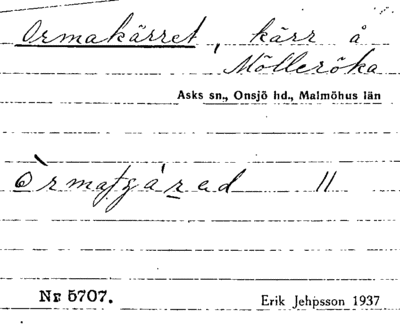 Ormakärret, kärr å
Mölleröka
Asks sn., Onsjö hd., Malmöhus län
Nr 5707.
Erik Jehpsson 1937